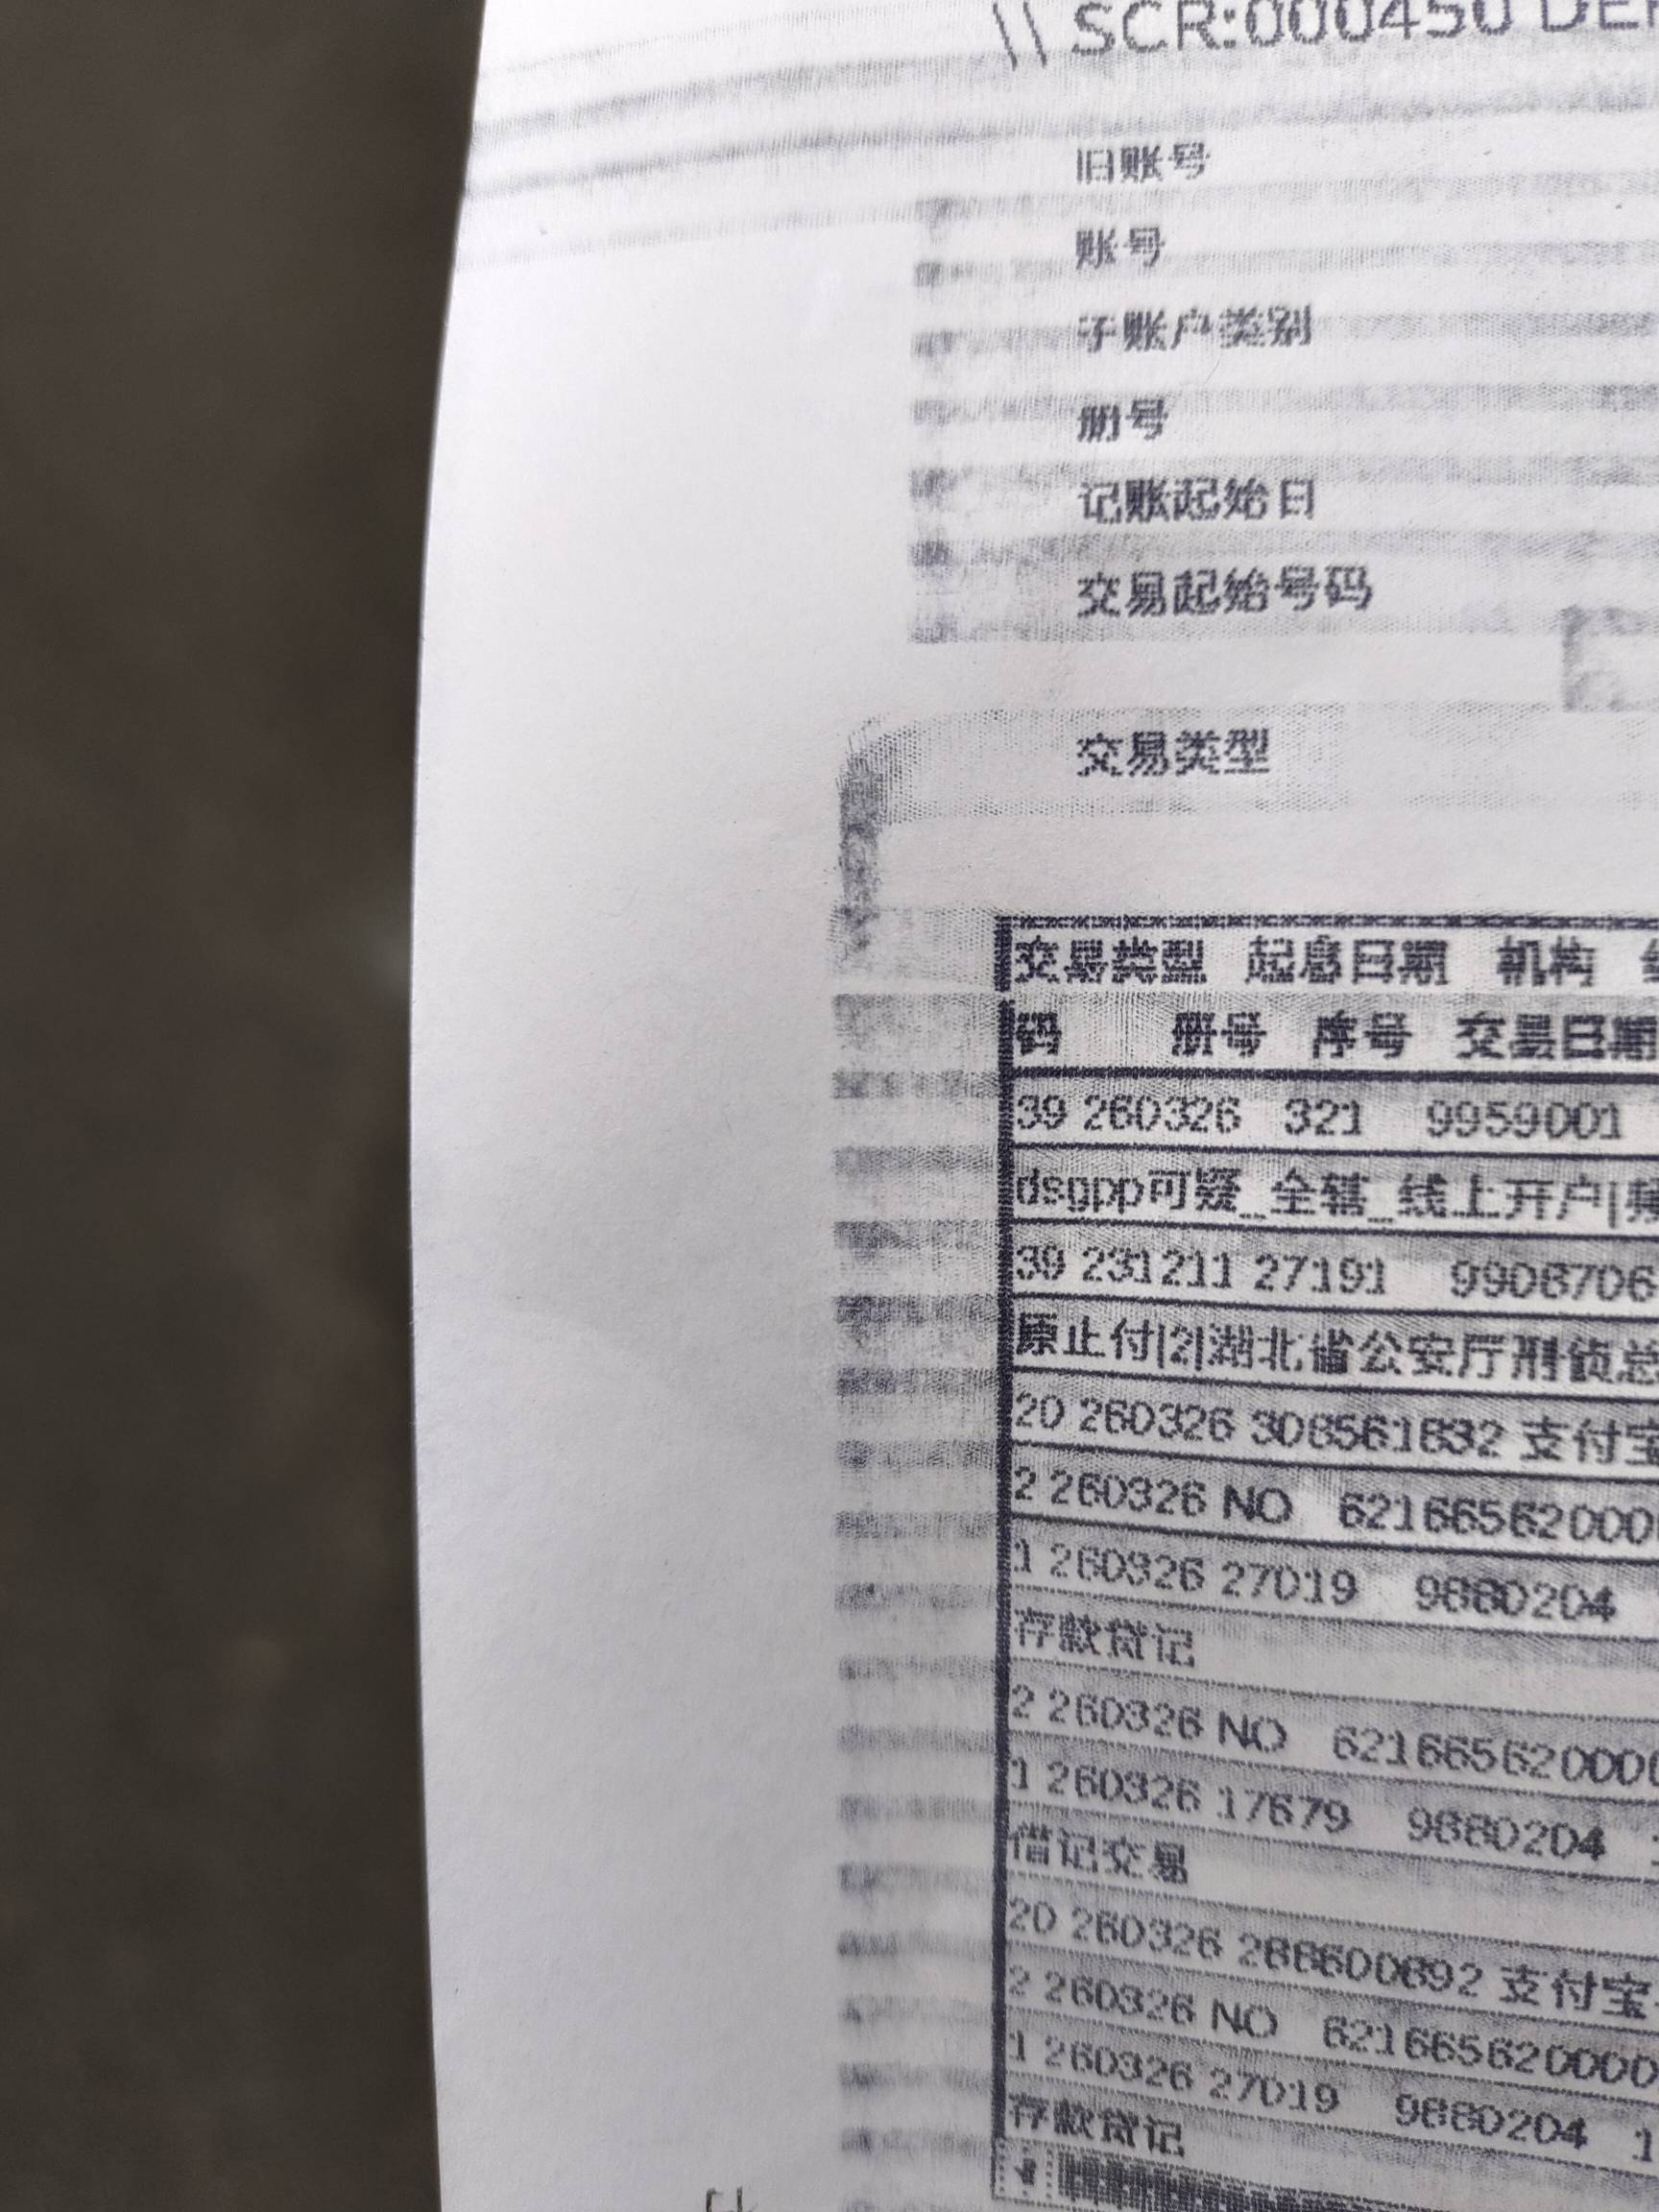 \\ SCR:000450 DE
旧账号
账号
子账户类别
册号
记账起始日
交易起始号码
交易类型
交易类型 起息日期 机构
码 册号 序号 交易日期
39 260326 321 9959001
dsgpp可疑_全辖_线上开户|
39 231211 27191 9908706
原止付|2|湖北省公安厅刑侦总
20 260326 308561832 支付宝
2 260326 NO 621665620000
1 260326 27019 9880204
存款贷记
2 260326 NO 621665620000
1 260326 17679 9880204
借记交易
20 260326 288600892 支付宝
2 260326 NO 621665620000
1 260326 27019 9880204 1
存款贷记